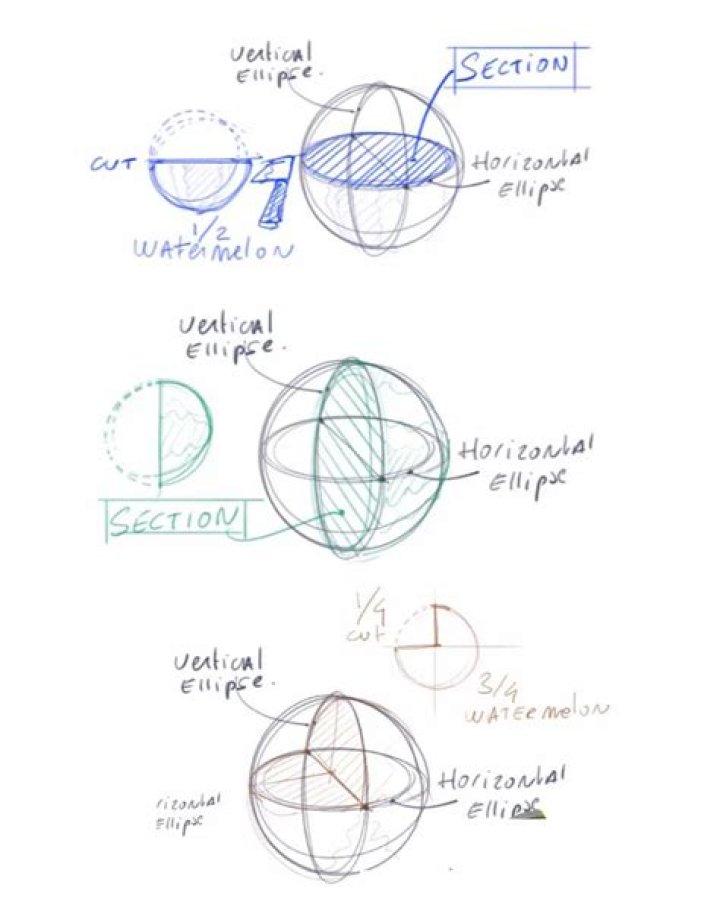 Vertical
Ellipse.
SECTION
CUT
Horizontal
Ellipse
1/2
WATERMELON
Vertical
Ellipse.
Horizontal
Ellipse
SECTION
1/4
CUT
Vertical
Ellipse.
3/4
WATERMELON
Horizontal
Ellipse
rizontal
Ellipse